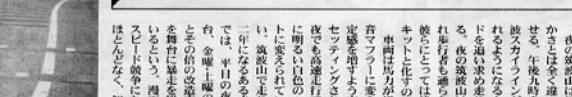 夜の筑波
かさとは全く違
せる。午後九時
波スカイライン
れるようになる
ドを追い求め走
る。夜の筑波山
れ歩行者も通ら
彼らにとっては
キットと化すの
車両は馬力が
音マフラーに変
定感を増すよう
セッティングさ
夜でも高速走行
に明るい白色の
トに変えられて
い、筑波山で走
二年になるある
では、平日の夜
台、金曜・土曜の
とその倍の改造
を舞台に暴走を
いるという。漫
スピード競争に
ほとんどなく、